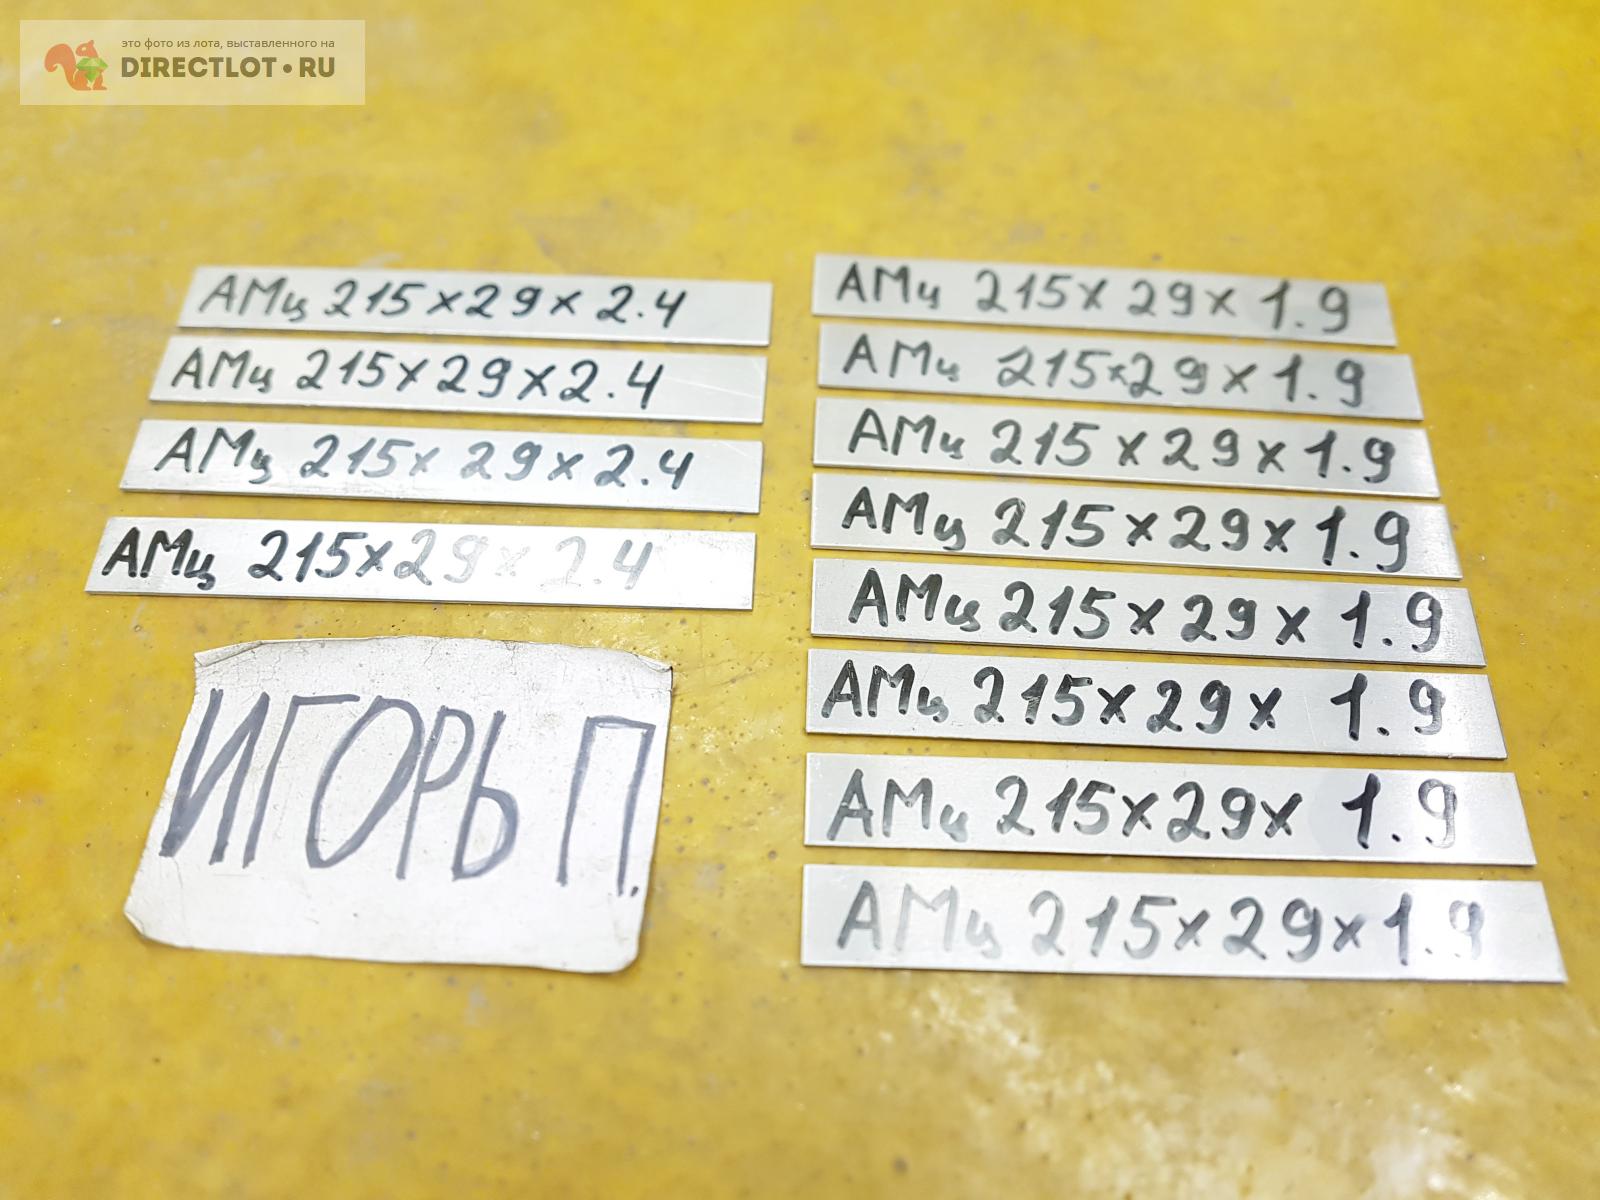 это фото из лота, выставленного на
DIRECTLOT•RU
АМц 215х29х2.4
АМц 215х29х2.4
АМц 215х29х2.4
АМц 215х29х2.4
ИГОРЬ П.
АМц 215х29х1.9
АМц 215х29х1.9
АМц 215х29х1.9
АМц 215х29х1.9
АМц 215х29х1.9
АМц 215х29х1.9
АМц 215х29х1.9
АМц 215х29х1.9